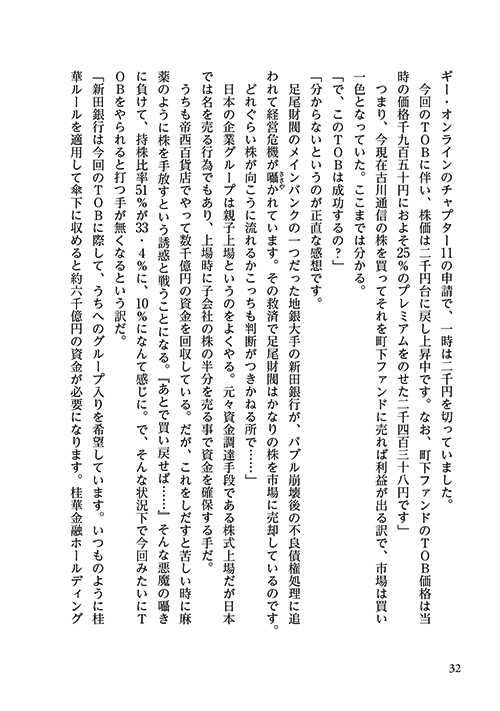 ギー・オンラインのチャプター11の申請で、一時は二千円を切っていました。
　今回のＴＯＢに伴い、株価は二千円台に戻し上昇中です。なお、町下ファンドのＴＯＢ価格は当
時の価格千九百五十円におよそ25％のプレミアムをのせた二千四百三十八円です」
　つまり、今現在古川通信の株を買ってそれを町下ファンドに売れば利益が出る訳で、市場は買い
一色となっていた。ここまでは分かる。
「で、このＴＯＢは成功するの？」
「分からないというのが正直な感想です。
　足尾財閥のメインバンクの一つだった地銀大手の新田銀行が、バブル崩壊後の不良債権処理に追
われて経営危機が囁かれています。その救済で足尾財閥はかなりの株を市場に売却しているのです。
　どれぐらい株が向こうに流れるかこっちも判断がつきかねる所で……」
　日本の企業グループは親子上場というのをよくやる。元々資金調達手段である株式上場だが日本
では名を売る行為でもあり、上場時に子会社の株の半分を売る事で資金を確保する手だ。
　うちも帝西百貨店でやって数千億円の資金を回収している。だが、これをしだすと苦しい時に麻
薬のように株を手放すという誘惑と戦うことになる。『あとで買い戻せば……』そんな悪魔の囁き
に負けて、持株比率51％が33・4％に、10％になんて感じに。で、そんな状況下で今回みたいにＴ
ＯＢをやられると打つ手が無くなるという訳だ。
「新田銀行は今回のＴＯＢに際して、うちへのグループ入りを希望しています。いつものように桂
華ルールを適用して傘下に収めると約六千億円の資金が必要になります。桂華金融ホールディング
32